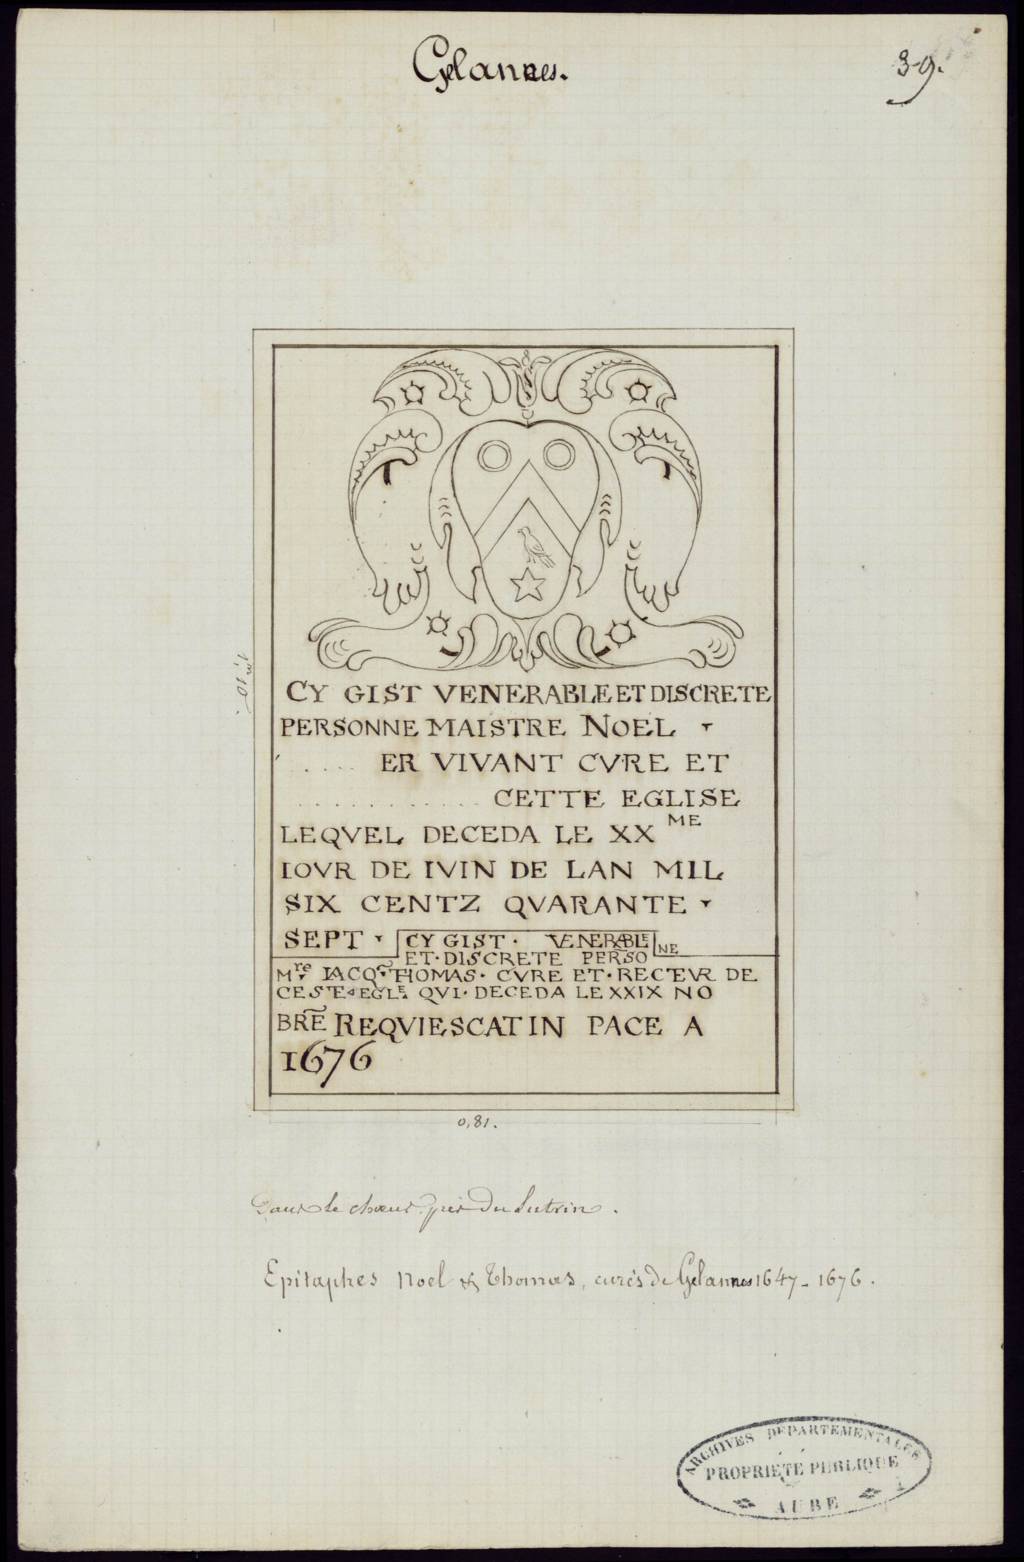 Gelannes.
39.
CY GIST VENERABLE ET DISCRETE
PERSONNE MAISTRE NOEL
..... ER VIVANT CVRE ET
............ CETTE EGLISE
LEQVEL DECEDA LE XX ME
IOVR DE IVIN DE LAN MIL
SIX CENTZ QVARANTE
SEPT
CY GIST · VENERABLE
ET · DISCRETE PERSONE
Mre IACQ THOMAS · CVRE ET · RECTEVR DE
CESTE EGLE QVI · DECEDA LE XXIX NO
BRE REQVIESCAT IN PACE A
1676
1,m10.
0,81.
Dans le chœur, près du lutrin.
Epitaphes Noel & Thomas, curés de Gelannes 1647 - 1676.
ARCHIVES DEPARTEMENTALES
PROPRIÉTÉ PUBLIQUE
AUBE